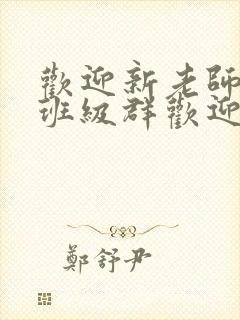 歡迎新老師
班級群歡迎
鄭舒尹